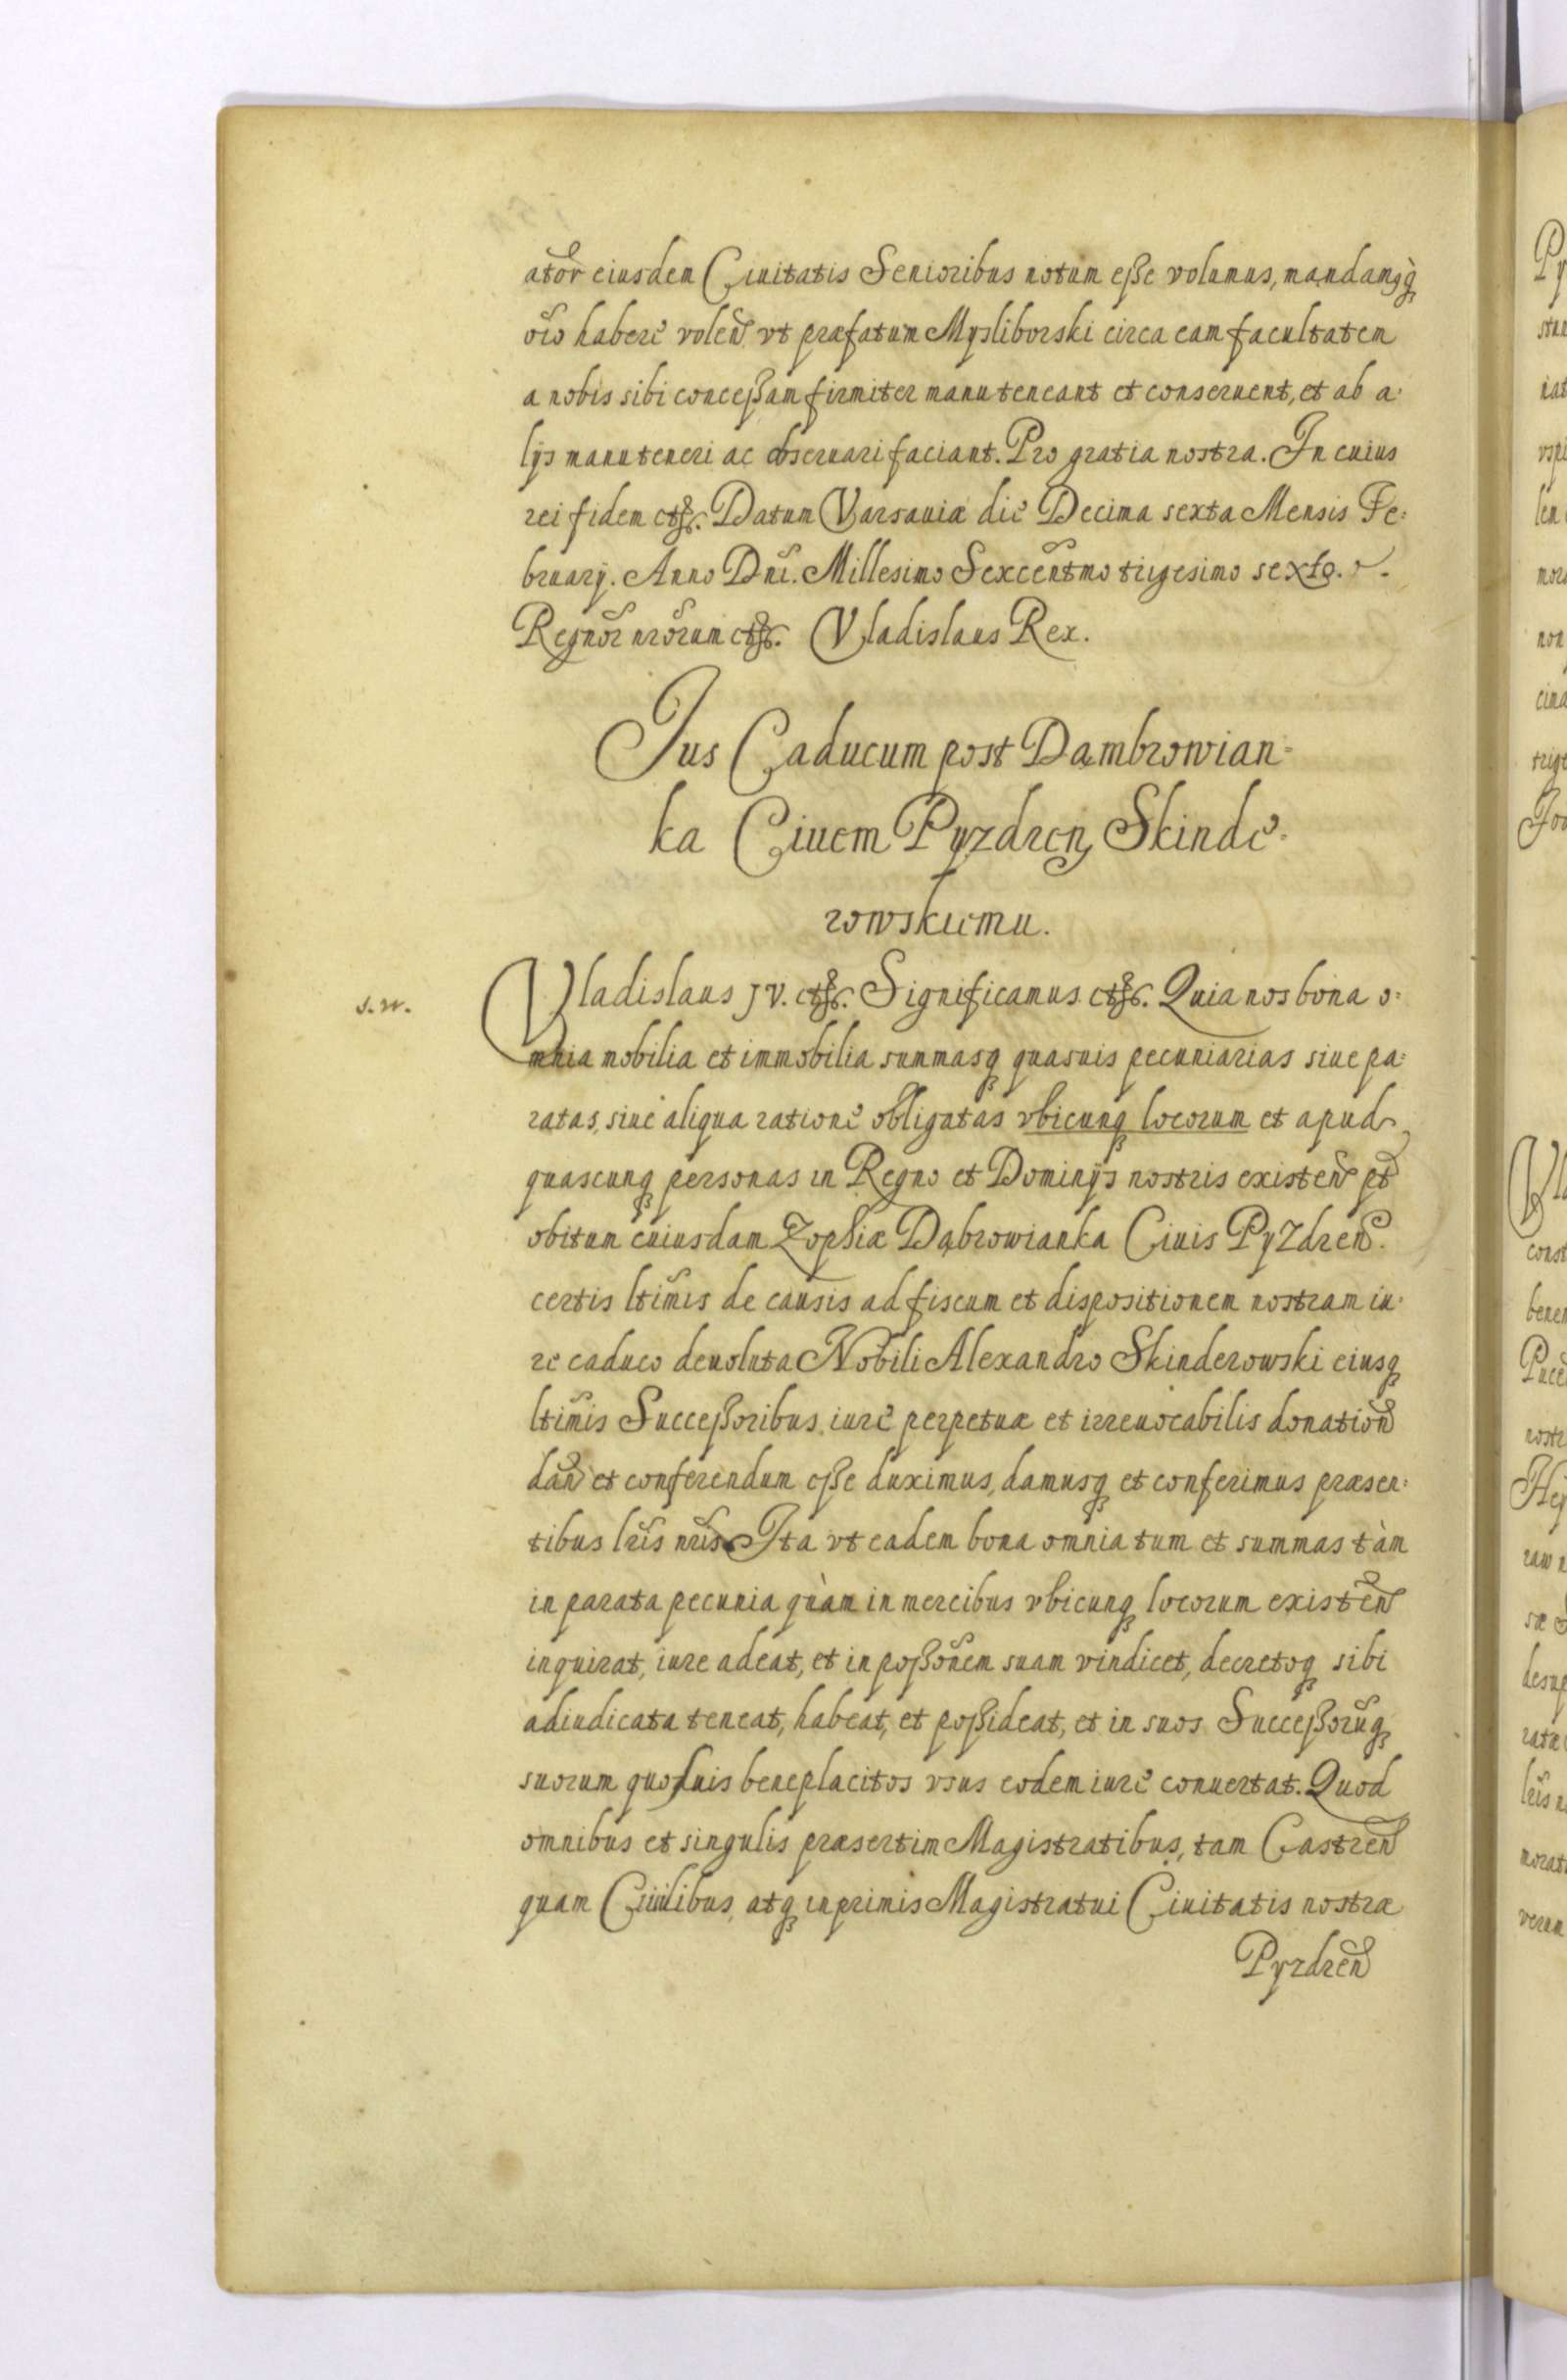 atōr eiusdem Ciuitatis Senioribus notum eße volumus, mandamꝙꝫ
oīo habere volen̄ vt præfatum Mysliborski circa eam facultatem
a nobis sibi conceßam firmiter manuteneant et conseruent, et ab a-
lijs manuteneri ac obseruari faciant. Pro gratia nostra. In cuius
rei fidem etc. Datum Varsauiæ die Decima sexta Mensis Fe-
bruarÿ. Anno Dnī. Millesimo Sexcentmo trigesimo sexto.
Regnōr nrōrum etc. Vladislaus Rex.
Jus Caducum post Dambrowian-
ka Ciuem Pyzdren̄ Skinde-
rowskiemu.
s.w.
Vladislaus JV. etc. Significamus etc. Quia nos bona o-
mnia mobilia et immobilia summasqꝫ quasuis pecuniarias siue pa-
ratas, siue aliqua ratione obligatas vbicunqꝫ locorum et apud
quascunqꝫ personas in Regno et Dominÿs nostris existen̄ pt
obitum cuiusdam Zophiæ Dąbrowianka Ciuis PyZdren̄.
certis ltīmis de causis ad fiscum et dispositionem nostram iu-
re caduco deuoluta Nobili Alexandro Skinderowski eiusqꝫ
ltīmis Succeßoribus iure perpetuæ et irreuocabilis donation̄
dan̄ et conferendum eße duximus, damusqꝫ et conferimus præsen-
tibus lrīs nrīs. Ita vt eadem bona omnia tum et summas tàm
in parata pecunia quàm in mercibus vbicunqꝫ locorum existen̄
inquirat, iure adeat, et in poßonēm suam vindicet, decretoqꝫ sibi
adiudicata teneat, habeat, et poßideat, et in suos Succeßorūqꝫ
suorum quosuis beneplacitos vsus eodem iure conuertat. Quod
omnibus et singulis præsertim Magistratibus, tam Castren̄
quam Ciuilibus, atqꝫ inprimis Magistratui Ciuitatis nostræ
Pyzdren̄